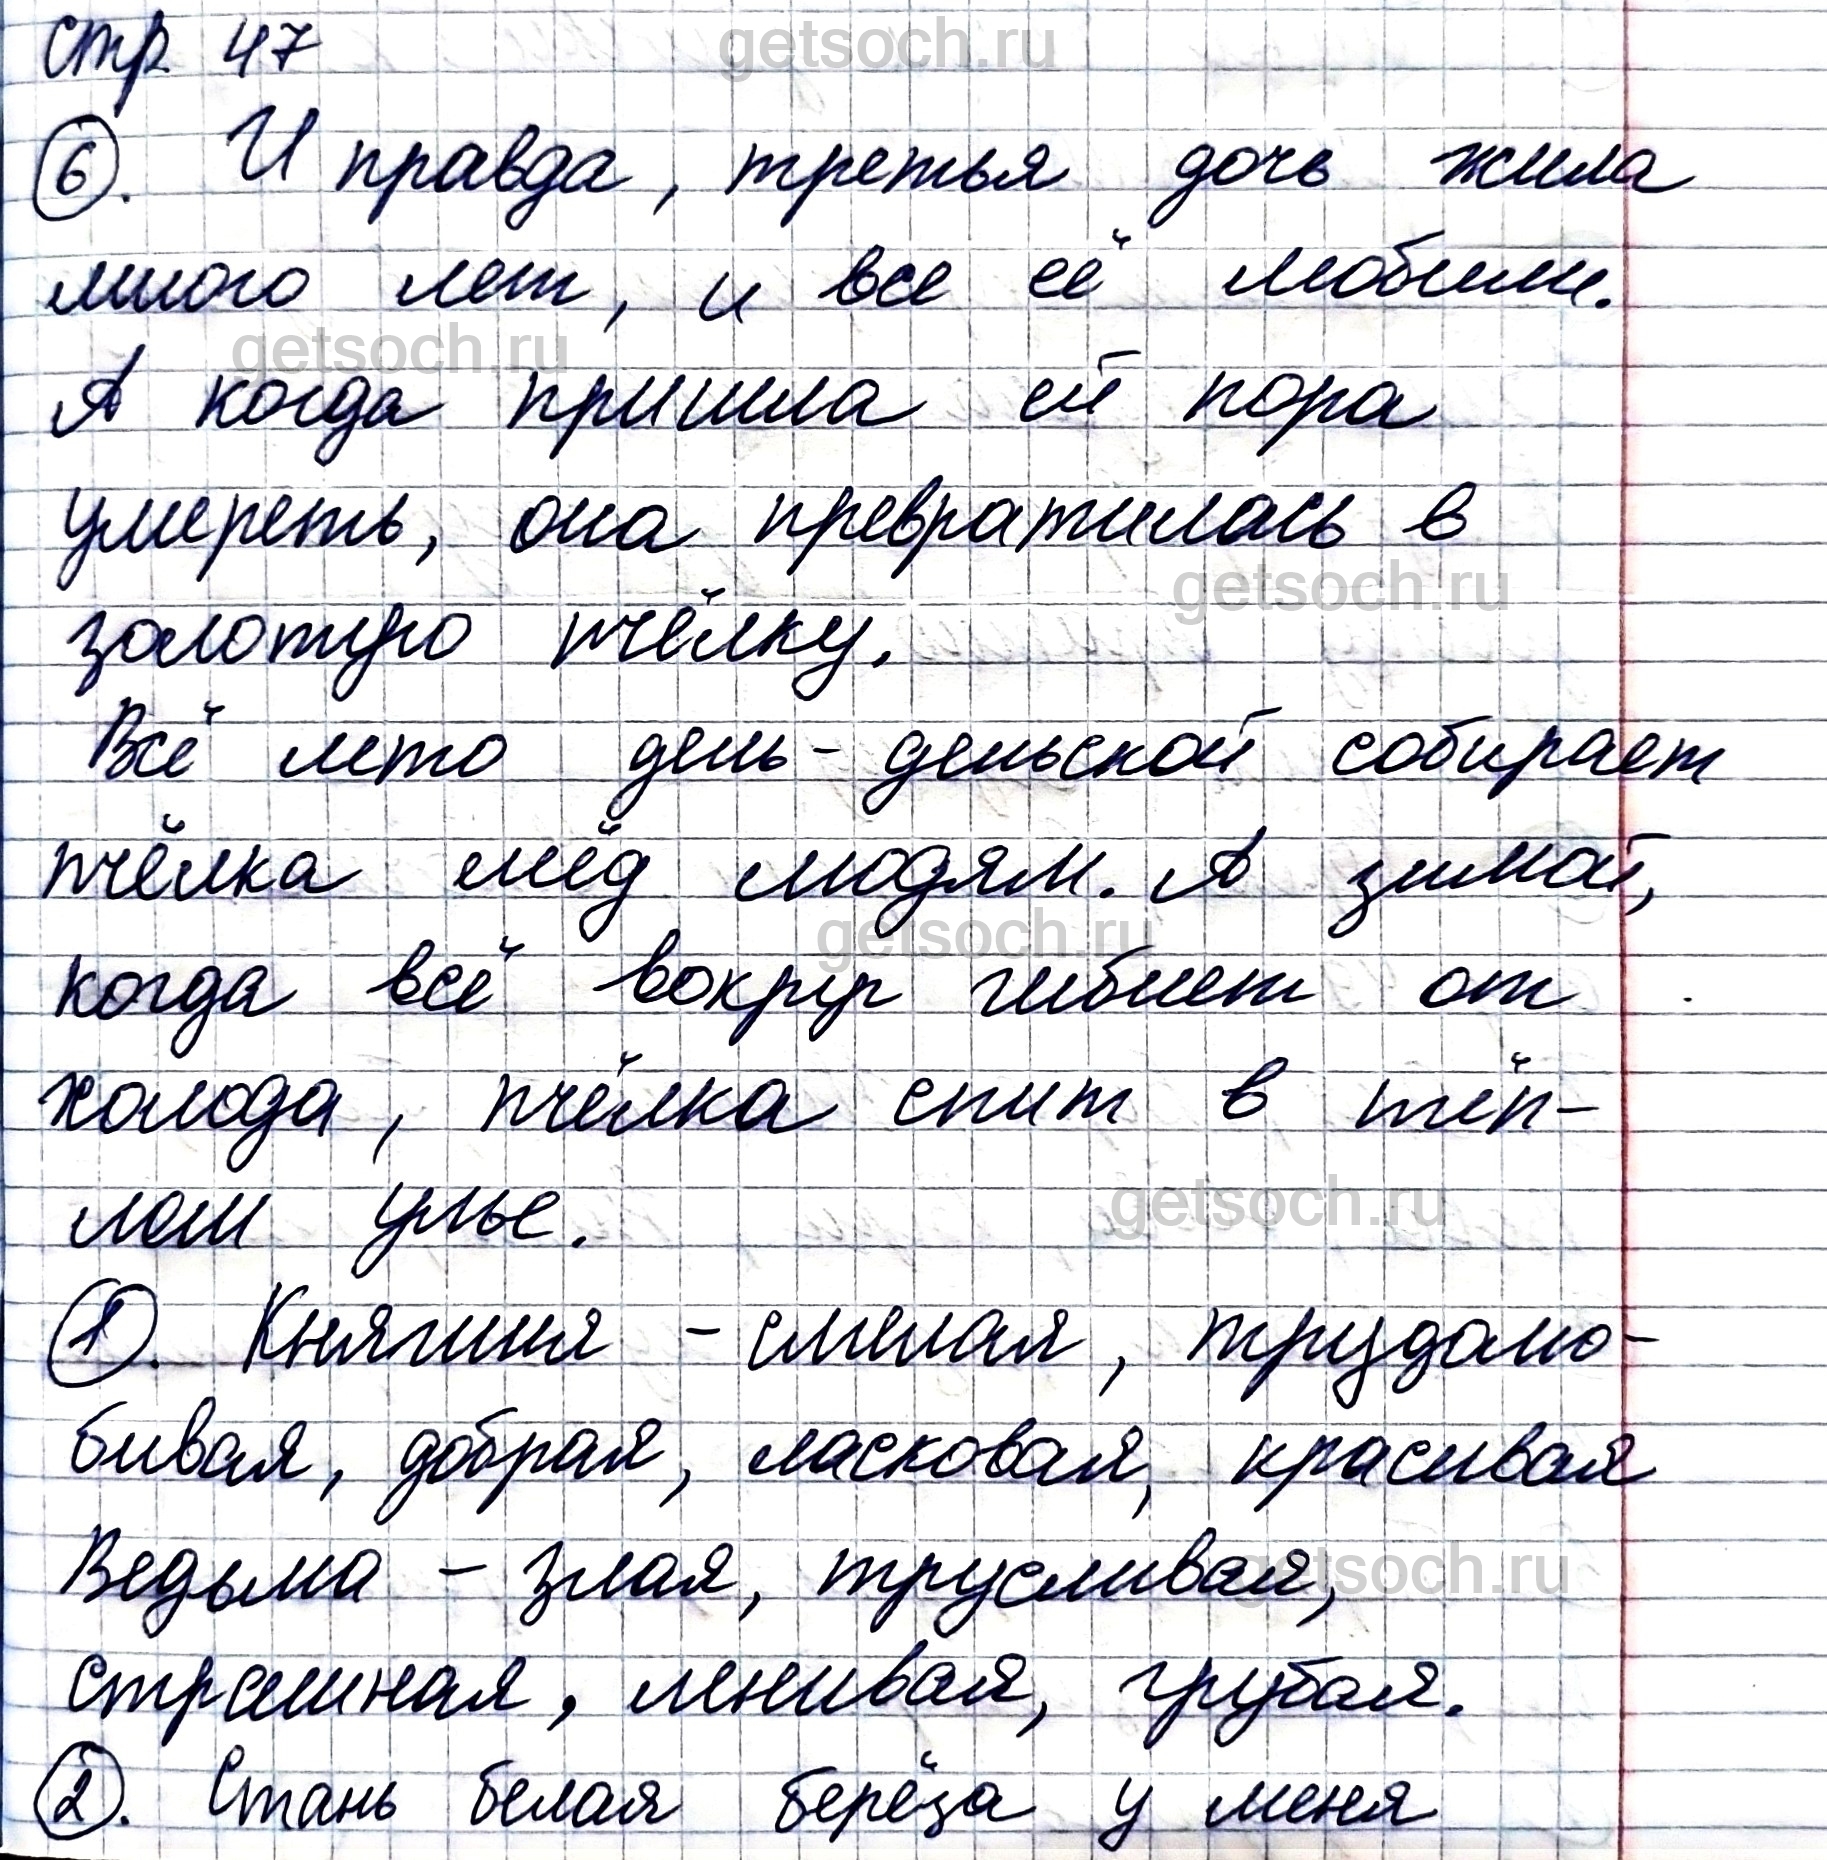 стр 47
getsoch.ru
6. И правда, третья дочь жила
много лет, и все её любили.
getsoch.ru
А когда пришла ей пора
умереть, она превратилась в
getsoch.ru
золотую пчёлку.
Всё лето день-деньской собирает
пчёлка мёд людям. А зимой,
getsoch.ru
когда всё вокруг гибнет от
холода, пчёлка спит в тёп-
getsoch.ru
лом улье.
1. Княгиня - смелая, трудолю-
бивая, добрая, ласковая, красивая
getsoch.ru
Ведьма - злая, трусливая,
страшная, ленивая, грубая.
2. Стань белая берёза у меня